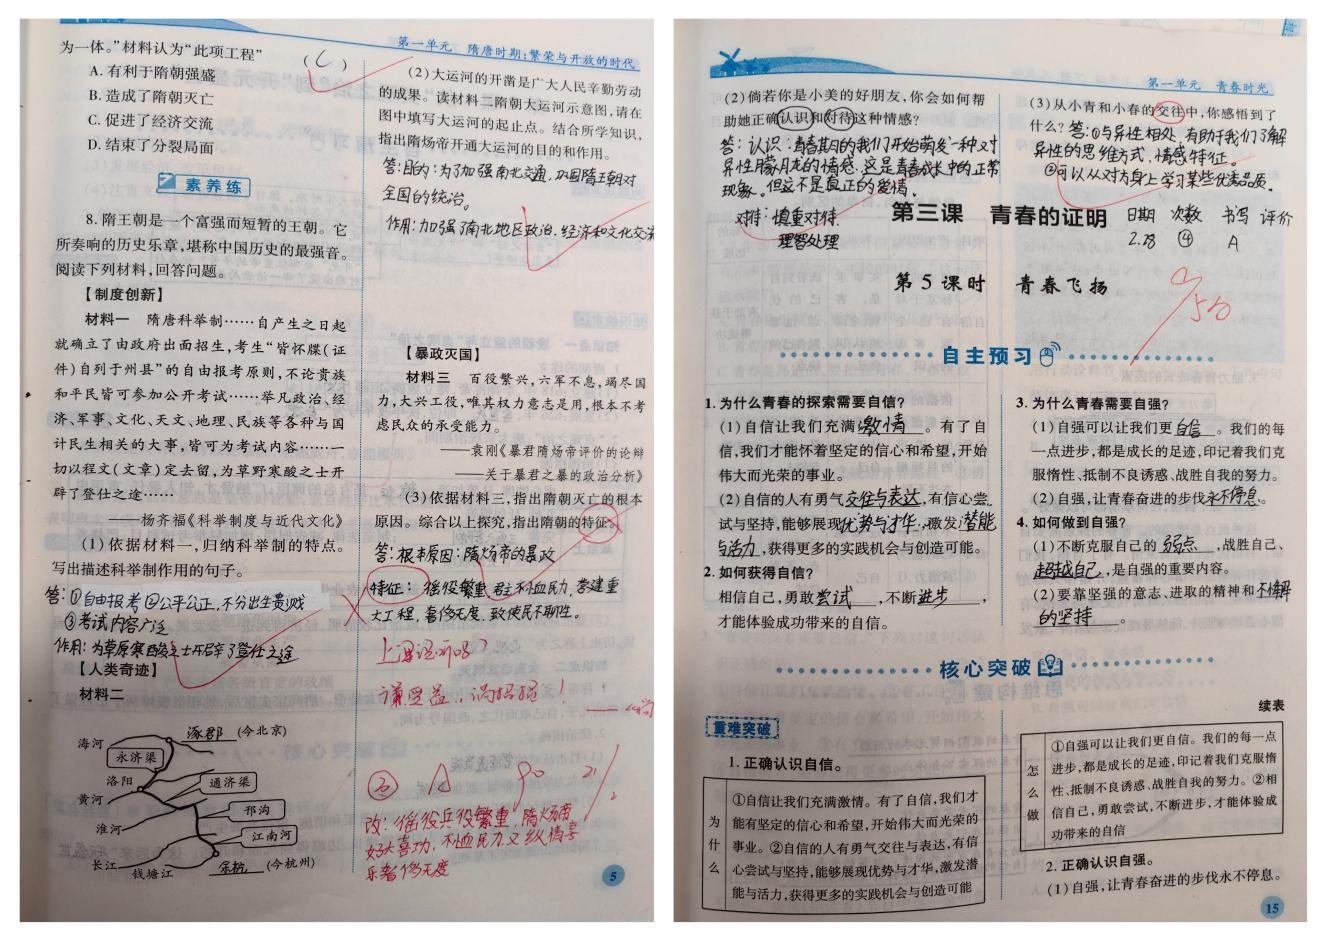 为一体。”材料认为“此项工程”
( C )
A. 有利于隋朝强盛
B. 造成了隋朝灭亡
C. 促进了经济交流
D. 结束了分裂局面
素养练
8. 隋王朝是一个富强而短暂的王朝。它
所奏响的历史乐章,堪称中国历史的最强音。
阅读下列材料,回答问题。
【制度创新】
材料一 隋唐科举制……自产生之日起
就确立了由政府出面招生,考生“皆怀牒(证
件)自列于州县”的自由报考原则,不论贵族
和平民皆可参加公开考试……举凡政治、经
济、军事、文化、天文、地理、民族等各种与国
计民生相关的大事,皆可为考试内容……一
切以程文(文章)定去留,为草野寒酸之士开
辟了登仕之途……
——杨齐福《科举制度与近代文化》
(1)依据材料一,归纳科举制的特点。
写出描述科举制作用的句子。
答:①自由报考②公平公正,不分出生贵贱
③考试内容广泛
作用:为草原寒酸之士开辟了登任之途
【人类奇迹】
材料二
海河
涿郡 (今北京)
永济渠
洛阳
通济渠
黄河
邗沟
淮河
江南河
长江
余杭 (今杭州)
钱塘江
第一单元 隋唐时期:繁荣与开放的时代
(2)大运河的开凿是广大人民辛勤劳动
的成果。读材料二隋朝大运河示意图,请在
图中填写大运河的起止点。结合所学知识,
指出隋炀帝开通大运河的目的和作用。
答:目的:为了加强南北交通,巩固隋王朝对
全国的统治。
作用:加强了南北地区政治、经济和文化交流
【暴政灭国】
材料三 百役繁兴,六军不息,竭尽国
力,大兴工役,唯其权力意志是用,根本不考
虑民众的承受能力。
——袁刚《暴君隋炀帝评价的论辩
——关于暴君之暴的政治分析》
(3)依据材料三,指出隋朝灭亡的根本
原因。综合以上探究,指出隋朝的特征。
答:根本原因:隋炀帝的暴政
特征:徭役繁重,君主不恤民力,营建重
大工程,奢侈无度,致使民不聊生。
上课说听吗?
谦受益,满招损!
A 90
改:徭役兵役繁重,隋炀帝
好大喜功,不恤民力又纵情享
乐奢侈无度
5
第一单元 青春时光
(2)倘若你是小美的好朋友,你会如何帮
助她正确认识和对待这种情感?
答:认识:青春期的我们开始萌发一种对
异性朦胧的情感,这是青春成长中的正常
现象。但这不是真正的爱情。
对待:慎重对待
理智处理
(3)从小青和小春的交往中,你感悟到了
什么?答:①与异性相处,有助于我们了解
异性的思维方式、情感特征。
②可以从对方身上学习某些优秀品质。
第三课 青春的证明
日期 次数 书写 评价
2.28 ④ A
第5课时 青春飞扬
自主预习
1. 为什么青春的探索需要自信?
(1)自信让我们充满激情。有了自
信,我们才能怀着坚定的信心和希望,开始
伟大而光荣的事业。
(2)自信的人有勇气交往与表达,有信心尝
试与坚持,能够展现优势与才华,激发潜能
与活力,获得更多的实践机会与创造可能。
2. 如何获得自信?
相信自己,勇敢尝试,不断进步,
才能体验成功带来的自信。
3. 为什么青春需要自强?
(1)自强可以让我们更自信。我们的每
一点进步,都是成长的足迹,印记着我们克
服惰性、抵制不良诱惑、战胜自我的努力。
(2)自强,让青春奋进的步伐永不停息。
4. 如何做到自强?
(1)不断克服自己的弱点,战胜自己、
超越自己,是自强的重要内容。
(2)要靠坚强的意志、进取的精神和不懈
的坚持。
核心突破
重难突破
1. 正确认识自信。
为什么
①自信让我们充满激情。有了自信,我们才
能有坚定的信心和希望,开始伟大而光荣的
事业。②自信的人有勇气交往与表达,有信
心尝试与坚持,能够展现优势与才华,激发潜
能与活力,获得更多的实践机会与创造可能
续表
怎么做
①自强可以让我们更自信。我们的每一点
进步,都是成长的足迹,印记着我们克服惰
性、抵制不良诱惑、战胜自我的努力。②相
信自己,勇敢尝试,不断进步,才能体验成
功带来的自信
2. 正确认识自强。
(1)自强,让青春奋进的步伐永不停息。
15